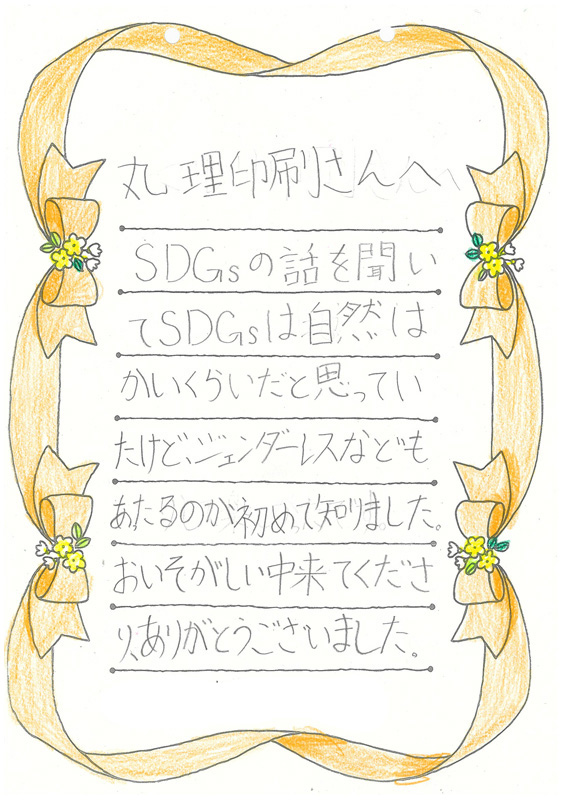 丸理印刷さんへ
SDGsの話を聞い
てSDGsは自然は
かいくらいだと思ってい
たけど、ジェンダーレスなども
あたるのが初めて知りました。
おいそがしい中来てくださ
り、ありがとうございました。